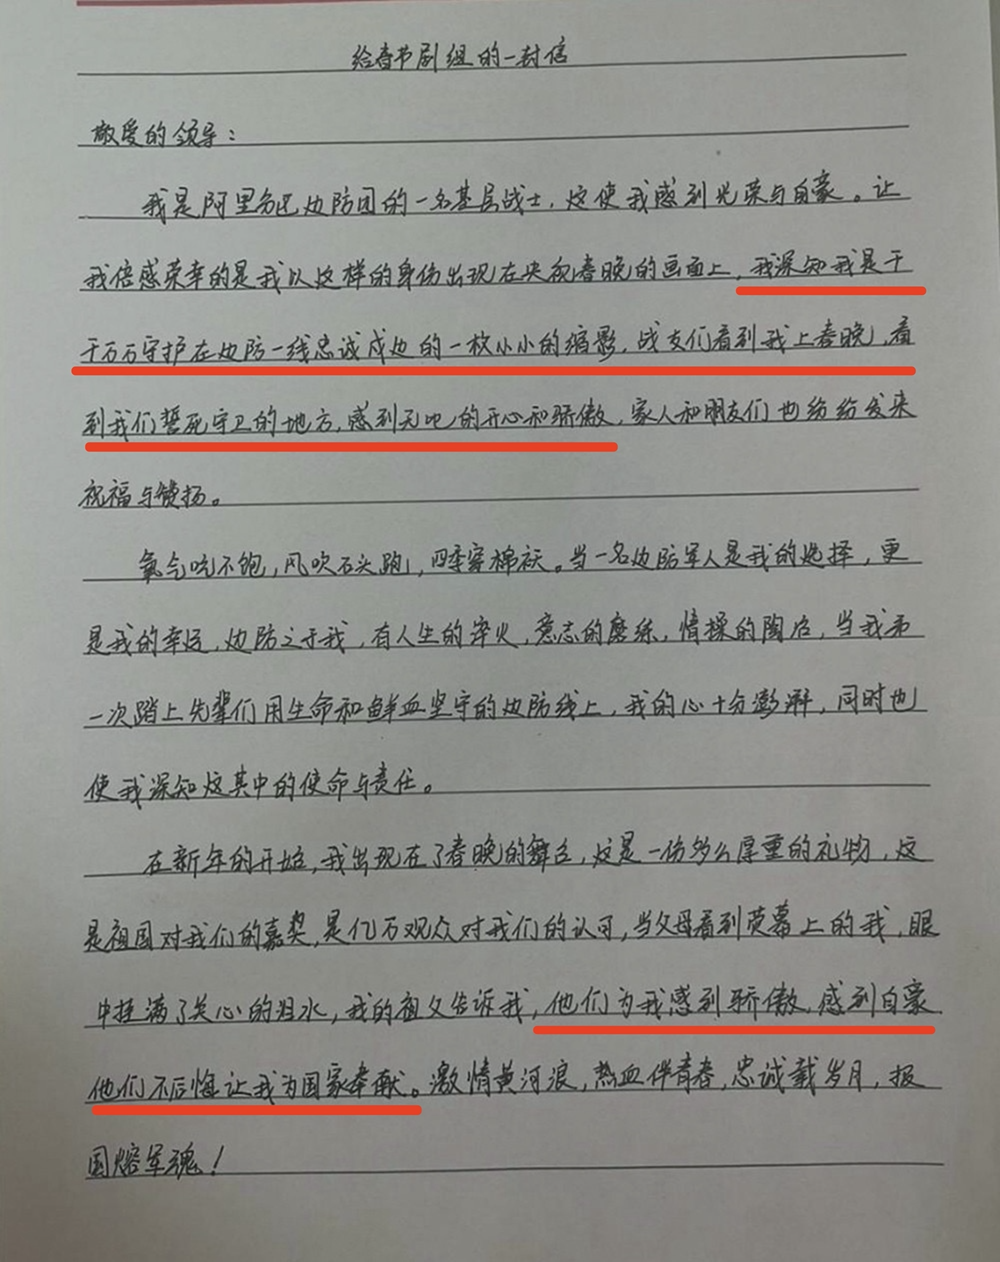 给春节剧组的一封信
敬爱的领导：
我是阿里分区边防团的一名基层战士，这使我感到光荣与自豪。让
我倍感荣幸的是我以这样的身份出现在央视春晚的画面上，我深知我是千
千万万守护在边防一线忠诚戍边的一枚小小的缩影，战友们看到我上春晚，看
到我们誓死守卫的地方，感到无比的开心和骄傲，家人和朋友们也纷纷发来
祝福与赞扬。
氧气吃不饱，风吹石头跑，四季穿棉袄。当一名边防军人是我的选择，更
是我的幸运，边防之于我，有人生的淬火，意志的磨练，情操的陶冶，当我第
一次踏上先辈们用生命和鲜血坚守的边防线上，我的心十分澎湃，同时也
使我深知这其中的使命与责任。
在新年的开始，我出现在了春晚的舞台，这是一份多么厚重的礼物，这
是祖国对我们的嘉奖，是亿万观众对我们的认可，当父母看到荧幕上的我，眼
中挂满了关心的泪水，我的祖父告诉我，他们为我感到骄傲，感到自豪
他们不后悔让我为国家奉献。激情黄河浪，热血伴青春，忠诚载岁月，报
国熔军魂！